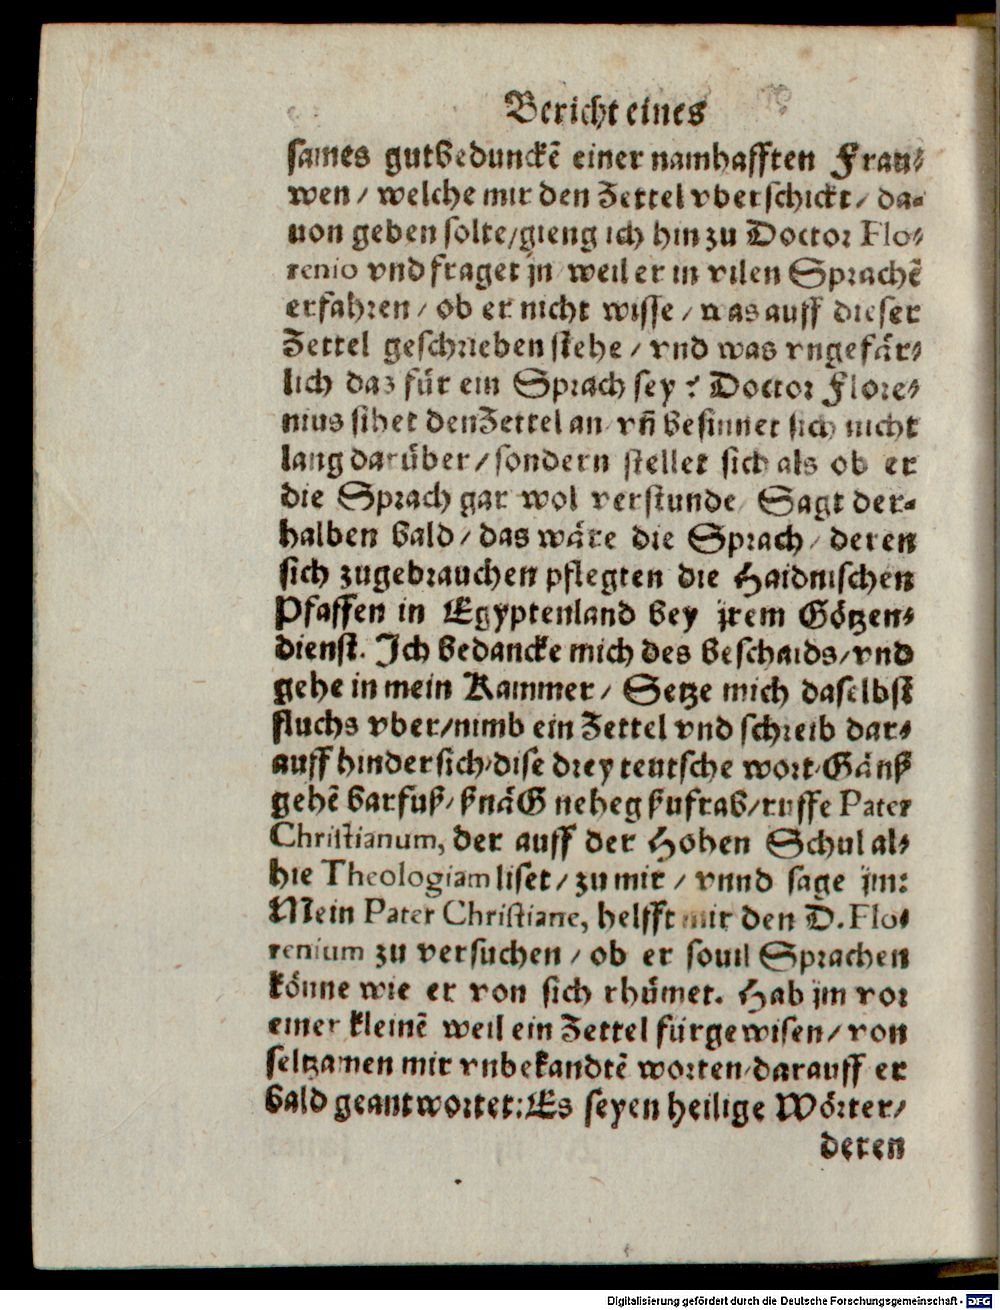 Bericht eines
sames gutbedunckē einer namhafften Frau⸗
wen / welche mir den Zettel vberschickt / da⸗
uon geben solte/gieng ich hin zu Doctor Flo⸗
renio vnd fraget jn weil er in vilen Sprachē
erfahren / ob er nicht wisse / was auff dieser
Zettel geschrieben stehe / vnd was vngefär⸗
lich daz für ein Sprach sey ? Doctor Flore⸗
nius sihet den Zettel an vñ besinnet sich nicht
lang darüber / sondern stellet sich als ob er
die Sprach gar wol verstunde / Sagt der⸗
halben bald / das wäre die Sprach / deren
sich zugebrauchen pflegten die Haidnischen
Pfaffen in Egyptenland bey jrem Götzen⸗
dienst. Ich bedancke mich des beschaids/vnd
gehe in mein Kammer / Setze mich daselbst
fluchs vber/nimb ein Zettel vnd schreib dar⸗
auff hindersich/dise drey teutsche wort/Gänß
gehē barfuß/ ßnäG neheg ßufrab/ruffe Pater
Christianum, der auff der Hohen Schul al⸗
hie Theologiam liset / zu mir / vnnd sage jm:
Mein Pater Christiane, helfft mir den D. Flo⸗
renium zu versuchen / ob er souil Sprachen
könne wie er von sich rhümet. Hab jm vor
einer kleinē weil ein Zettel fürgewisen/ von
seltzamen mir vnbekandtē worten/darauff er
bald geantwortet: Es seyen heilige Wörter/
deren
Digitalisierung gefördert durch die Deutsche Forschungsgemeinschaft - DFG